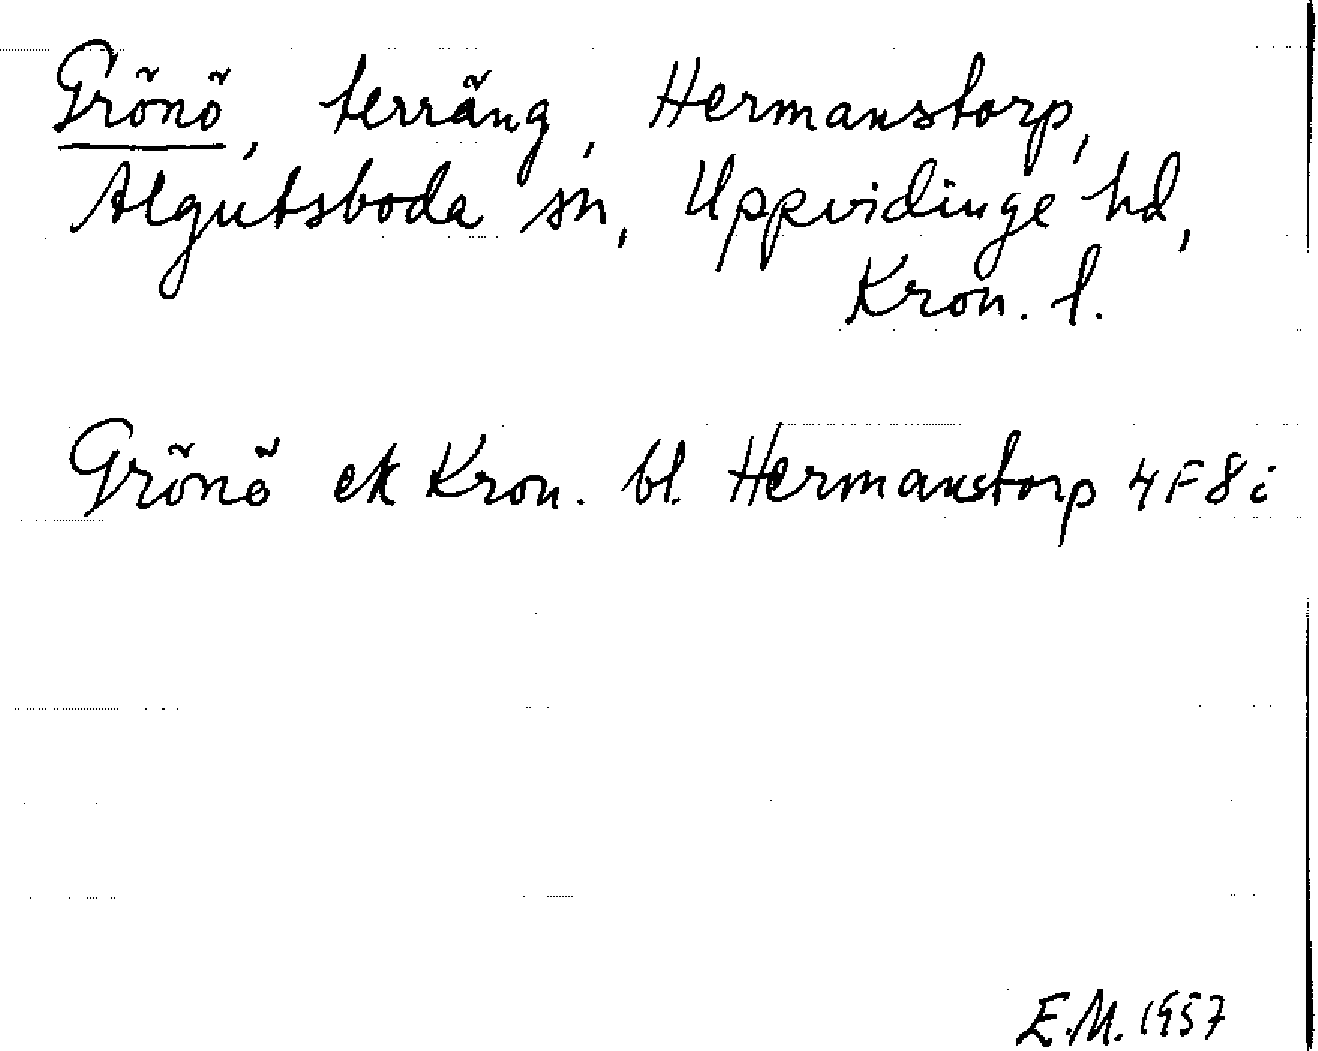 Grönö, terräng, Hermanstorp,
Algutsboda sn, Uppvidinge hd,
Kron. l.
Grönö ek Kron. bl. Hermanstorp 4F8i
E.M. 1957